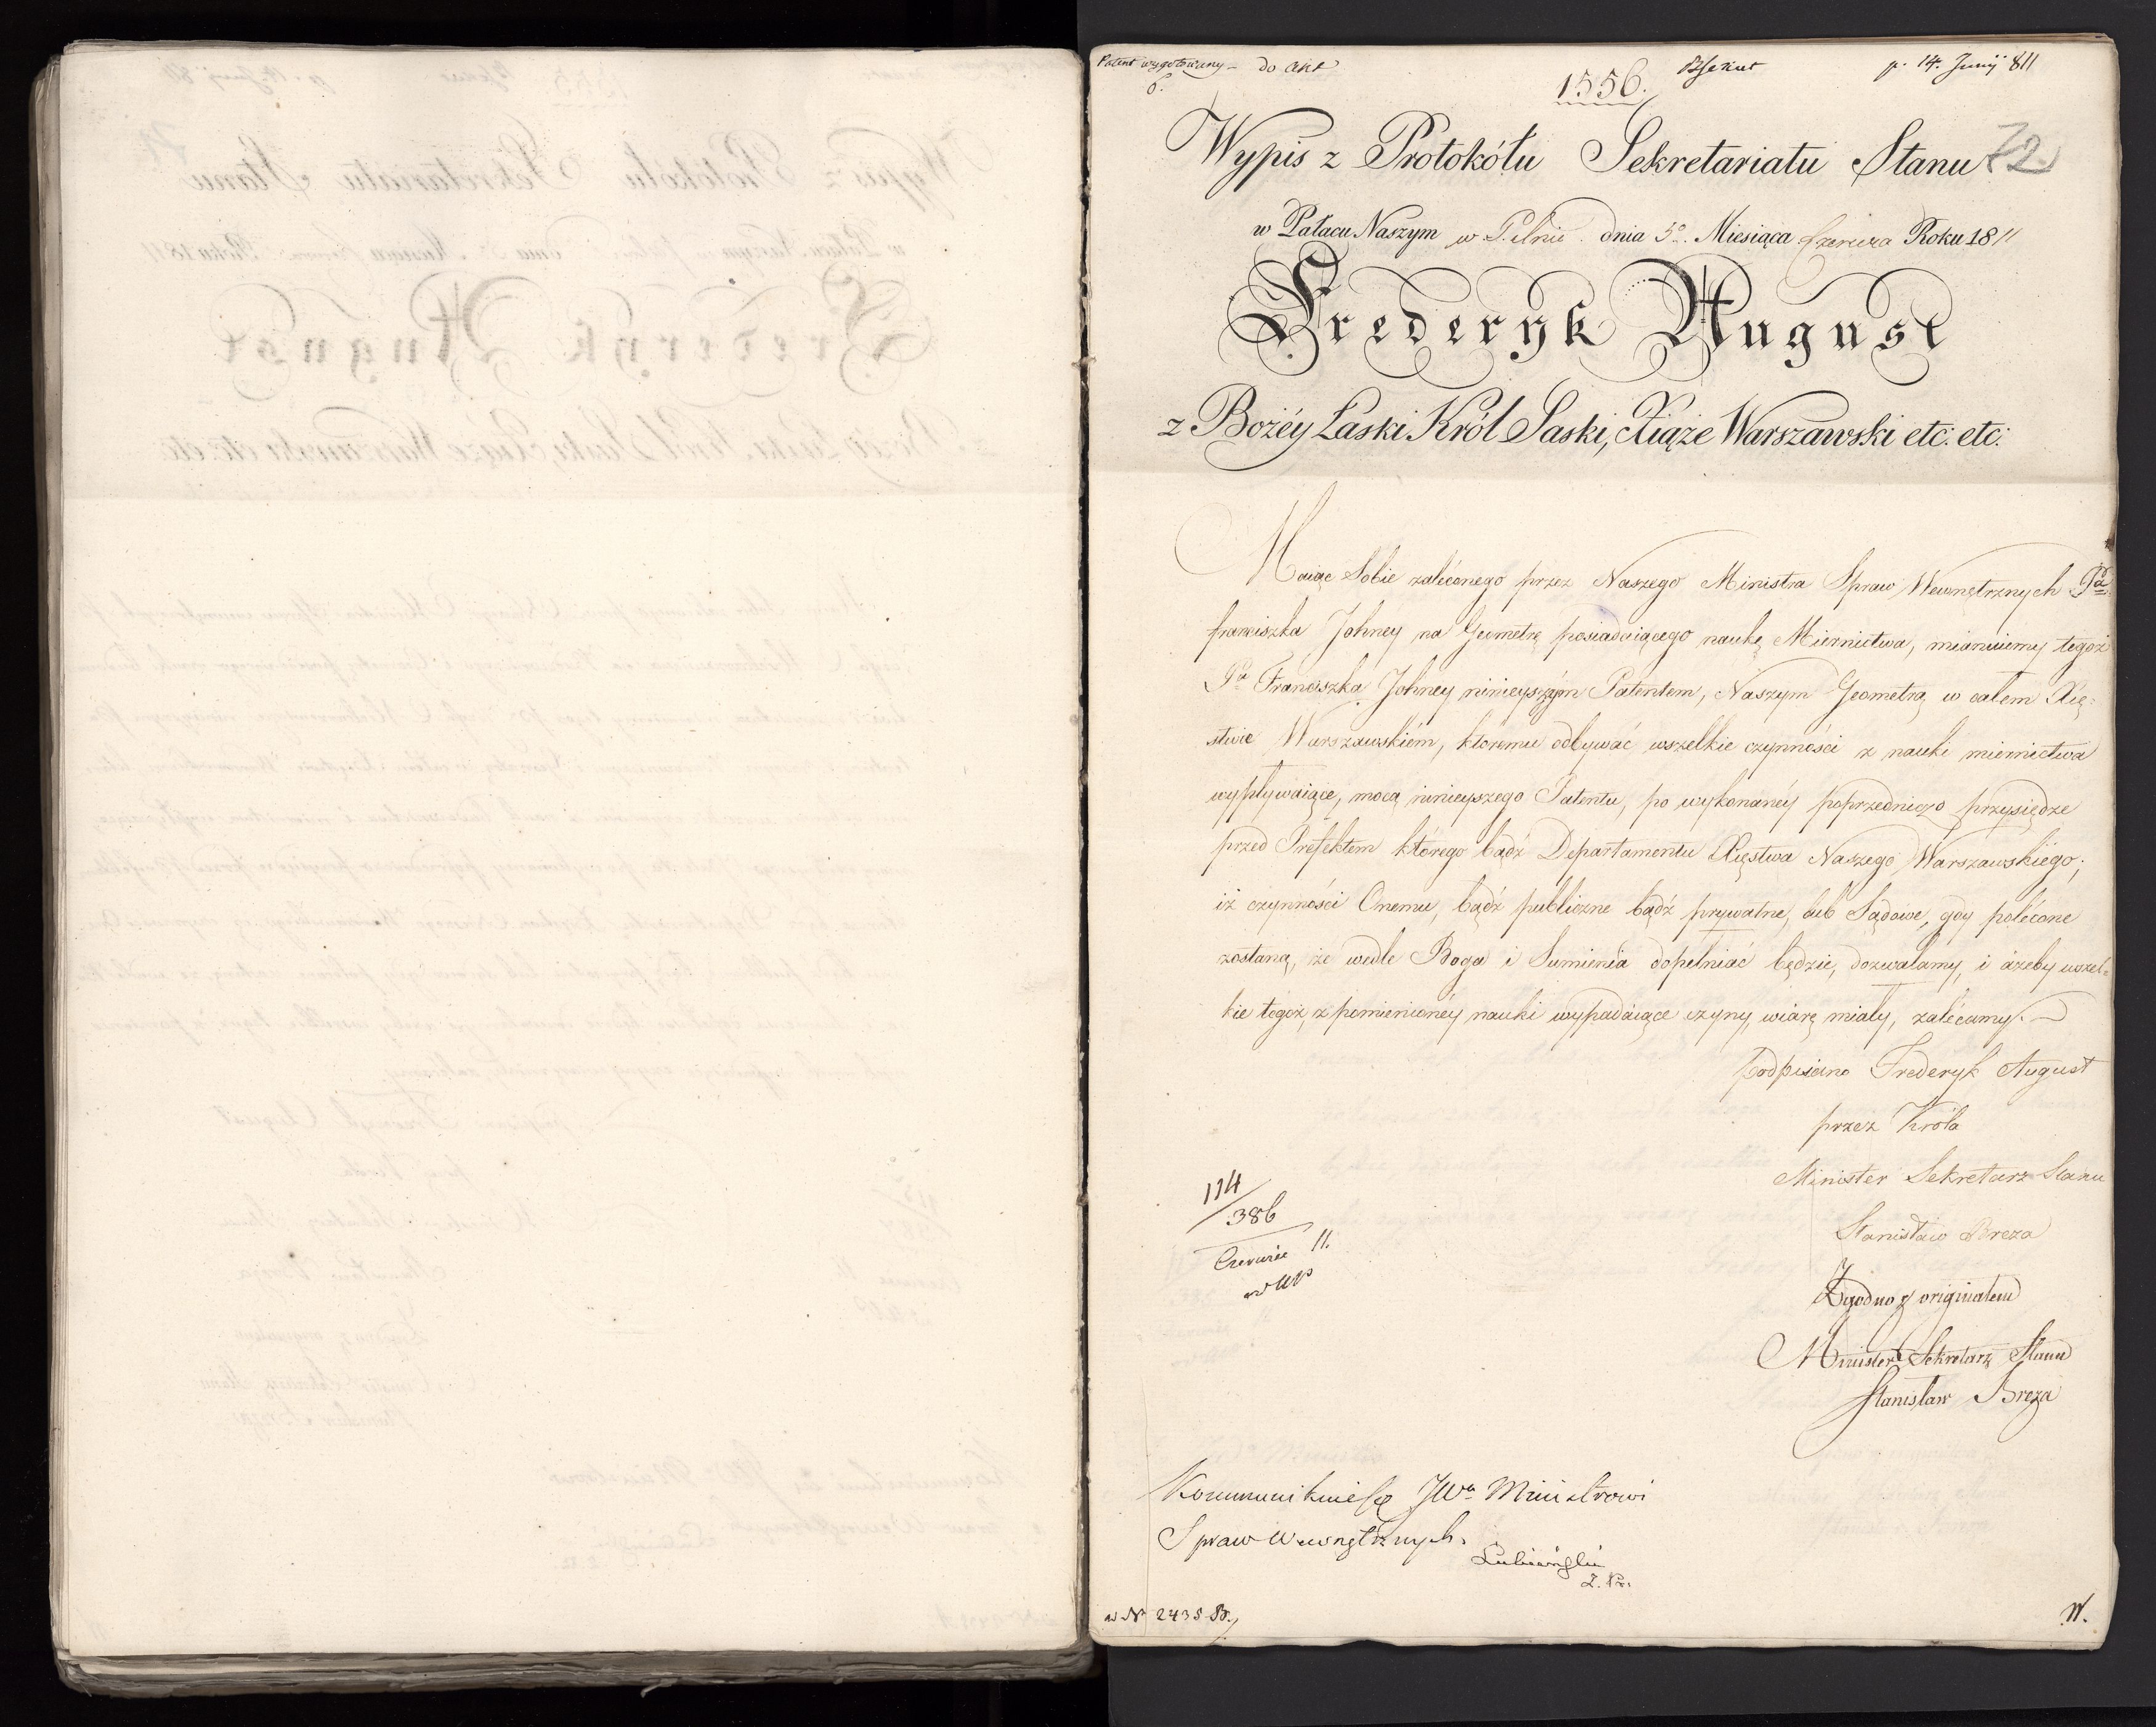 Patent wygotowany – do akt
p. 14. Junij 811
1556.
Wypis z Protokółu Sekretariatu Stanu
72
w Pałacu Naszym w Pilnie dnia 5º Miesiąca Czerwca Roku 1811
Frederyk August
z Bożéy Łaski Król Saski, Xiąże Warszawski etc: etc:
Maiąc Sobie zaleconego przez Naszego Ministra Spraw Wewnętrznych Pa
franciszka Johney na Geometrę posiadaiącego naukę Miernictwa, mianuiemy tegoż
Pa Franciszka Johney ninieyszym Patentem, Naszym Geometrą w całem Xię-
stwie Warszawskiém, któremu odbywać wszelkie czynności z nauki miernictwa
wypływaiące, mocą ninieyszego Patentu, po wykonanéy poprzedniczo przysiędze
przed Prefektem którego bądź Departamentu Xięstwa Naszego Warszawskiego;
iż czynności Onemu, bądź publiczne bądź prywatne, lub Sądowe, gdy polécone
zostaną, że wedle Boga i Sumienia dopełniać będzie, dozwalamy, i ażeby wszel-
kie tegoż, z pomienionéy nauki wypadaiące czyny, wiarę miały, zalécamy.
podpisano Frederyk August
przez Króla
Minister Sekretarz Stanu
Stanisław Breza
Zgodno z originałem
Minister Sekretarz Stanu
Stanisław Breza
114/386
Czerwiec 11.
Kommunikuie się JWu Ministrowi
Spraw Wewnętrznych.
w Nr 2435
W.